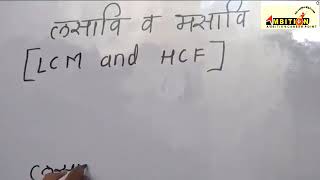 लसावि व मसावि
[LCM and HCF]
AMBITION